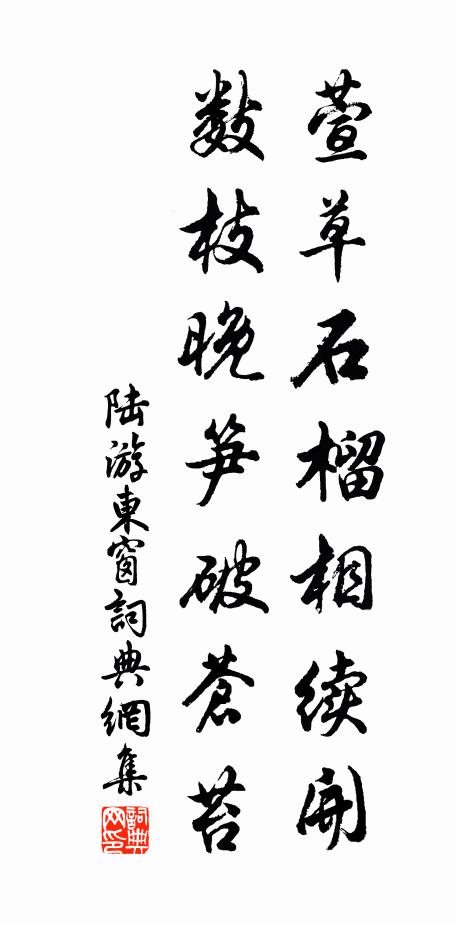 萱草石榴相续開
数枝晚笋破蒼苔
陆游東窗詞典網集
詞典网印